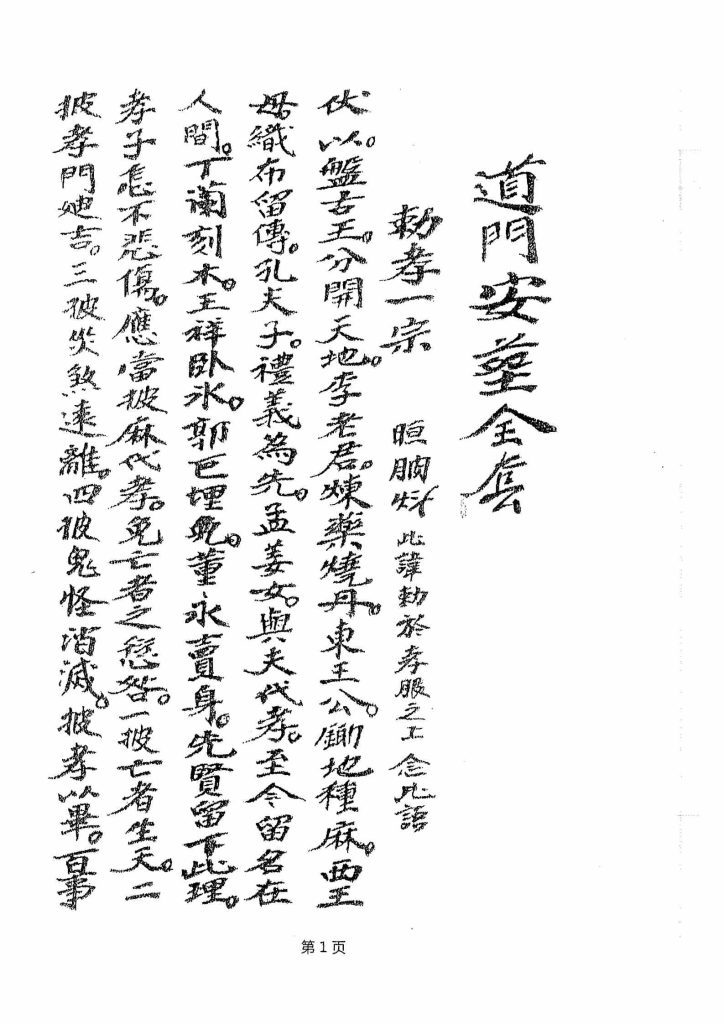 道門安墓全套
勅孝一宗 此諱勅於孝服之上念此語
伏以。盤古王。分開天地。李老君。煉藥燒丹。東王公。鋤地種麻。西王
母。織布留傳。孔夫子。禮義為先。孟姜女。與夫代孝。至今留名在
人間。丁蘭刻木。王祥卧氷。郭巨埋兒。董永賣身。先賢留下此理。
孝子怎不悲傷。應當披麻代孝。免亡者之愆咎。一披亡者生天。二
披孝門迪吉。三披災煞遠離。四披鬼怪消滅。披孝以畢。百事
第1页